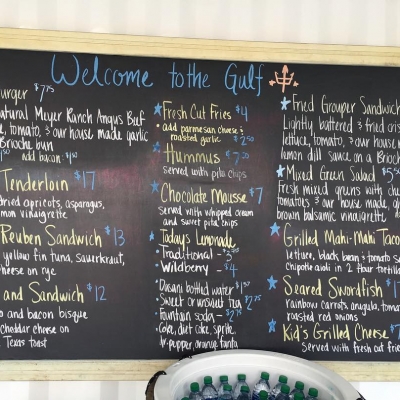 Welcome to the Gulf
urger $7.75
atural Meyer Ranch Angus Beef
tomato, & our house made garlic
Brioche bun
add bacon $1.50
Tenderloin $17
dried apricots, asparagus,
mon vinaigrette
Reuben Sandwich $13
yellow fin tuna, sauerkraut,
cheese on rye
and Sandwich $12
o and bacon bisque
cheddar cheese on
Texas toast
Fresh Cut Fries $4
• add parmesan cheese &
roasted garlic $2.50
Hummus $7.50
served with pita chips
Chocolate Mousse $7
Served with whipped cream
and sweet pita chips
Today's Lemonade
Traditional - $3
Wildberry - $4
• Dasani bottled water $1
• Sweet or unsweet tea $2.75
• Fountain soda - $2.75
• Coke, diet coke, sprite,
dr. pepper, orange fanta
Fried Grouper Sandwich
Lightly battered & fried cris
lettuce, tomato, & our house m
lemon dill sauce on a Brioch
Mixed Green Salad $5.5
Fresh mixed greens with che
tomatoes & our house made, gl
brown balsamic vinaigrette
Grilled Mahi-Mahi Taco
lettuce, black bean & tomato s
Chipotle aioli in 2 flour tortilla
Seared Swordfish $17
rainbow carrots, arugula, tomat
roasted red onions
Kid's Grilled Cheese $7
Served with fresh cut fri